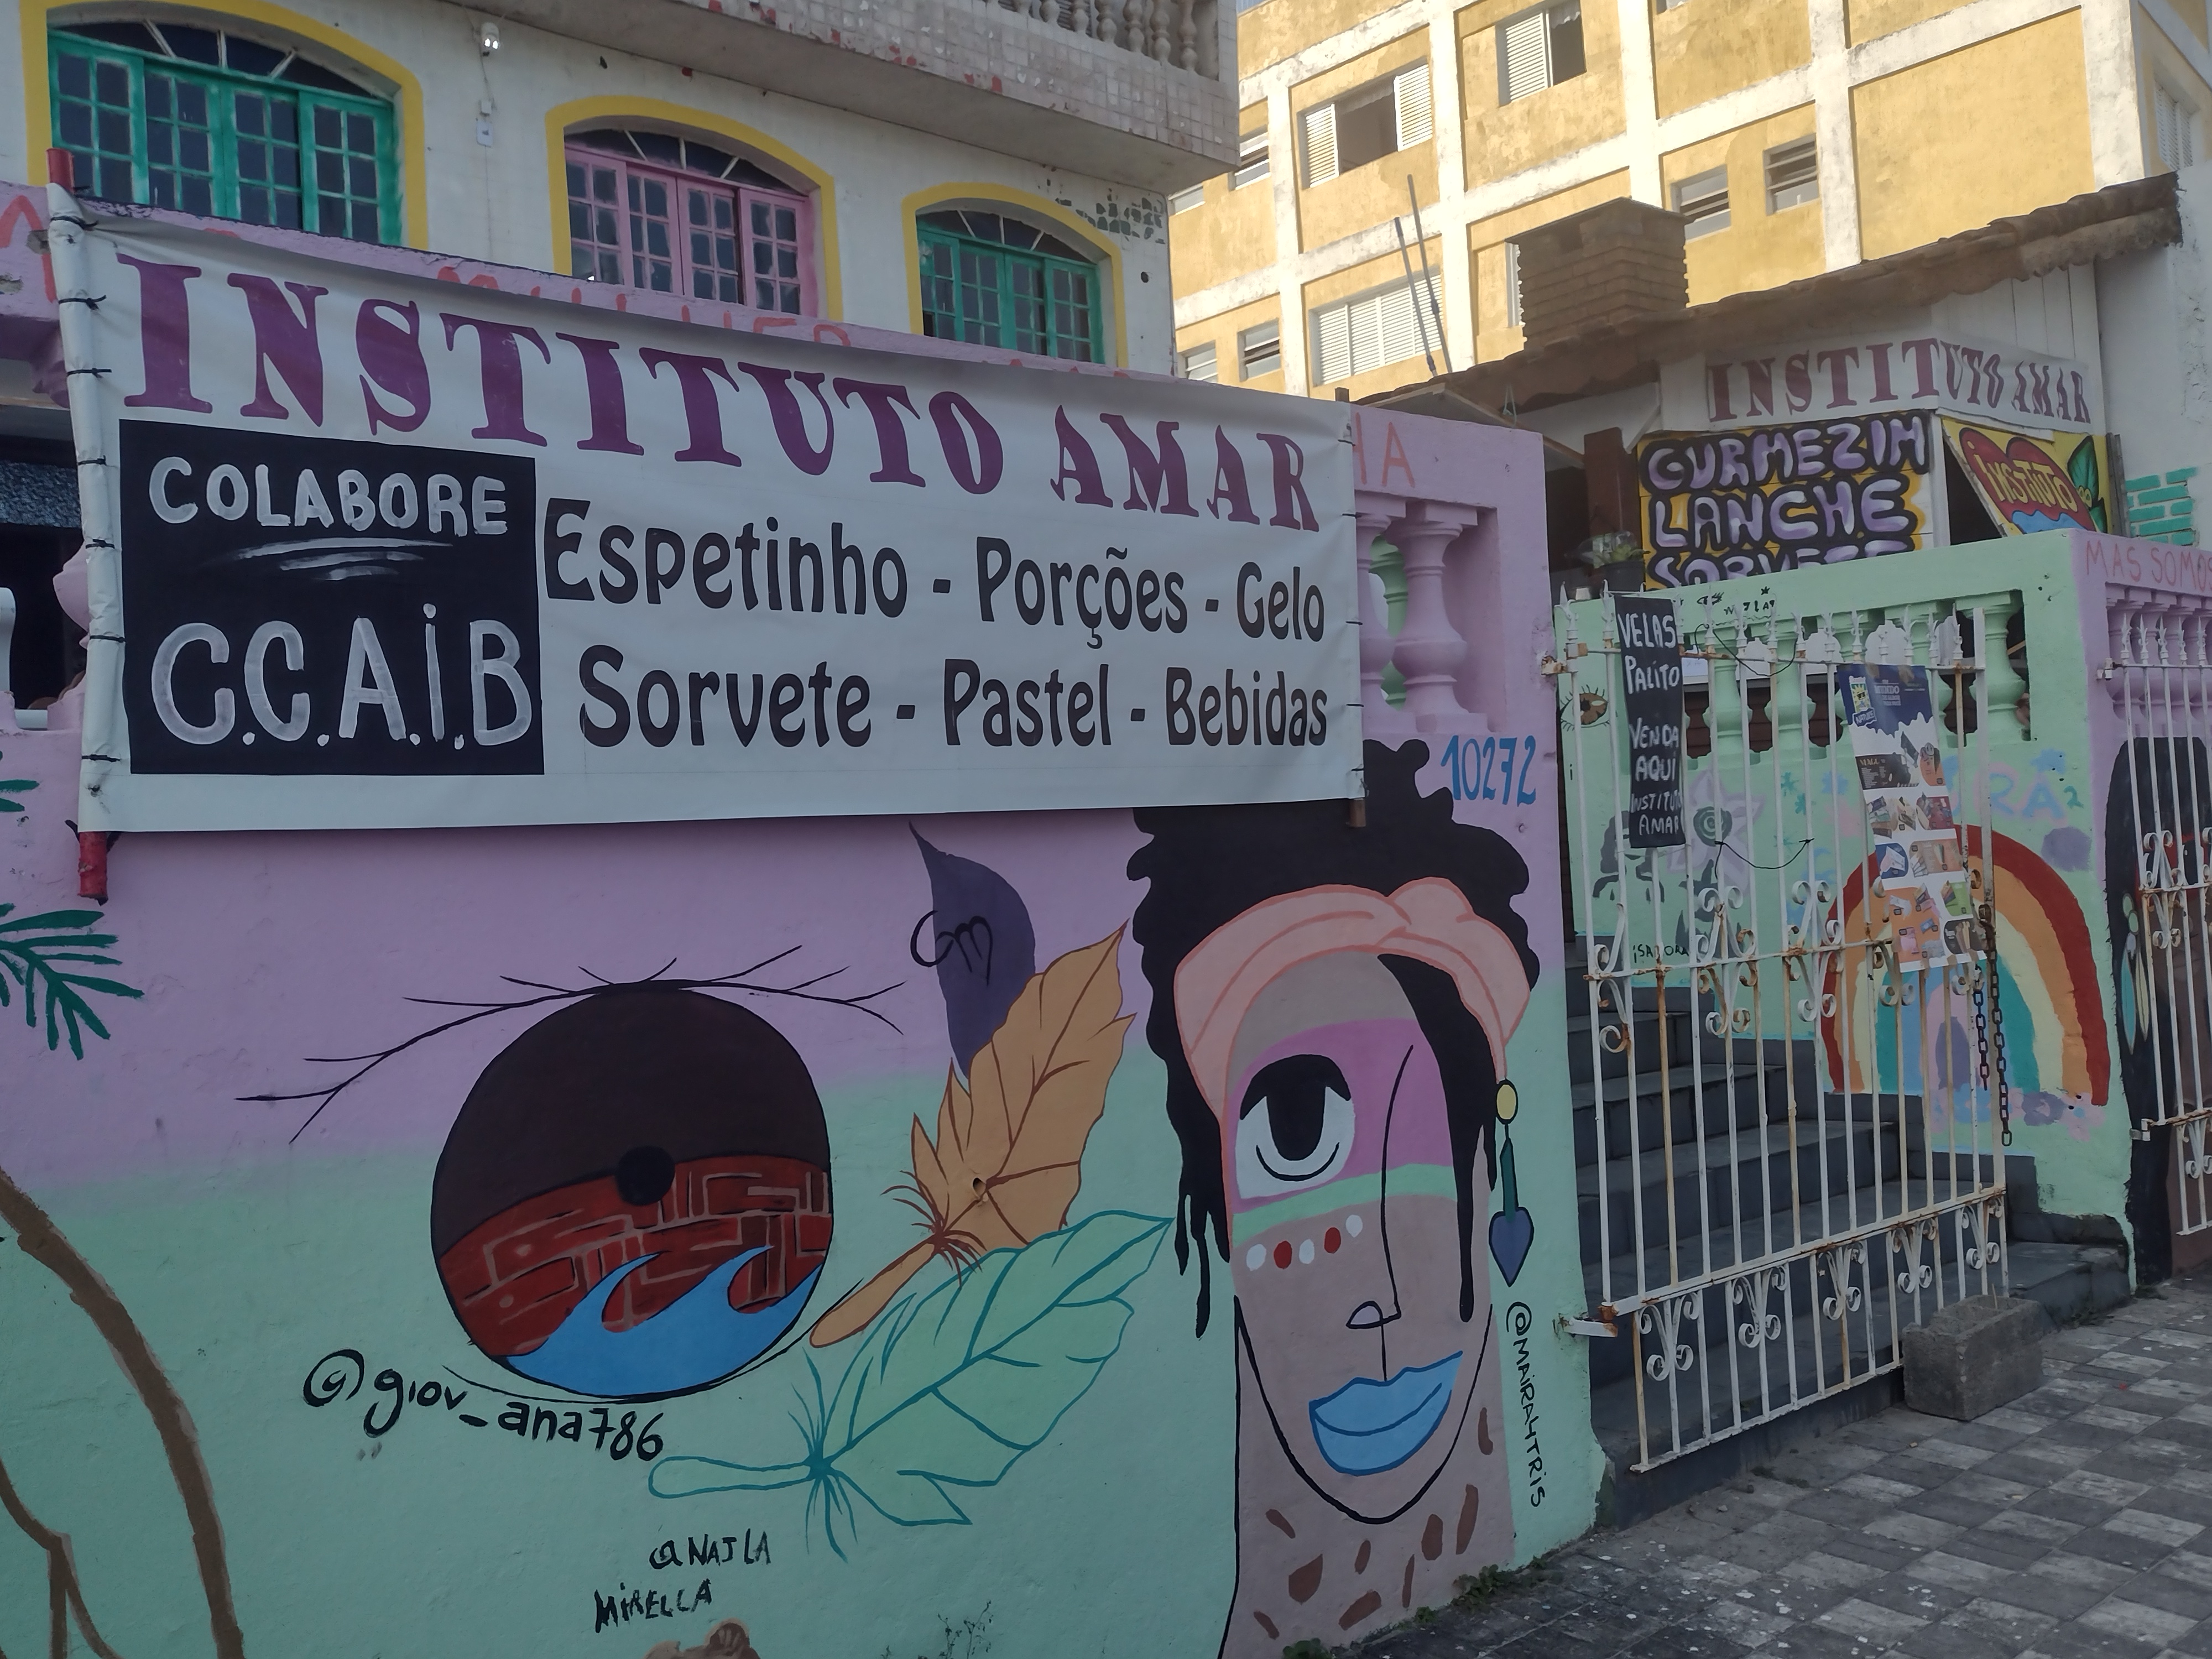 INSTITUTO AMAR
COLABORE
C.C.A.i.B
Espetinho - Porções - Gelo
Sorvete - Pastel - Bebidas
INSTITUTO AMAR
GURMEZIM
LANCHE
SORVETE
iNSTiTUTO
MAS SOMOS
10272
VELAS
PALiTO
VENDA
AQUi
iNSTiTUTO
AMAR
iSADORA
Gm
@giov_ana786
@MAiRA4TRiS
@NAJLA
MiRELLA